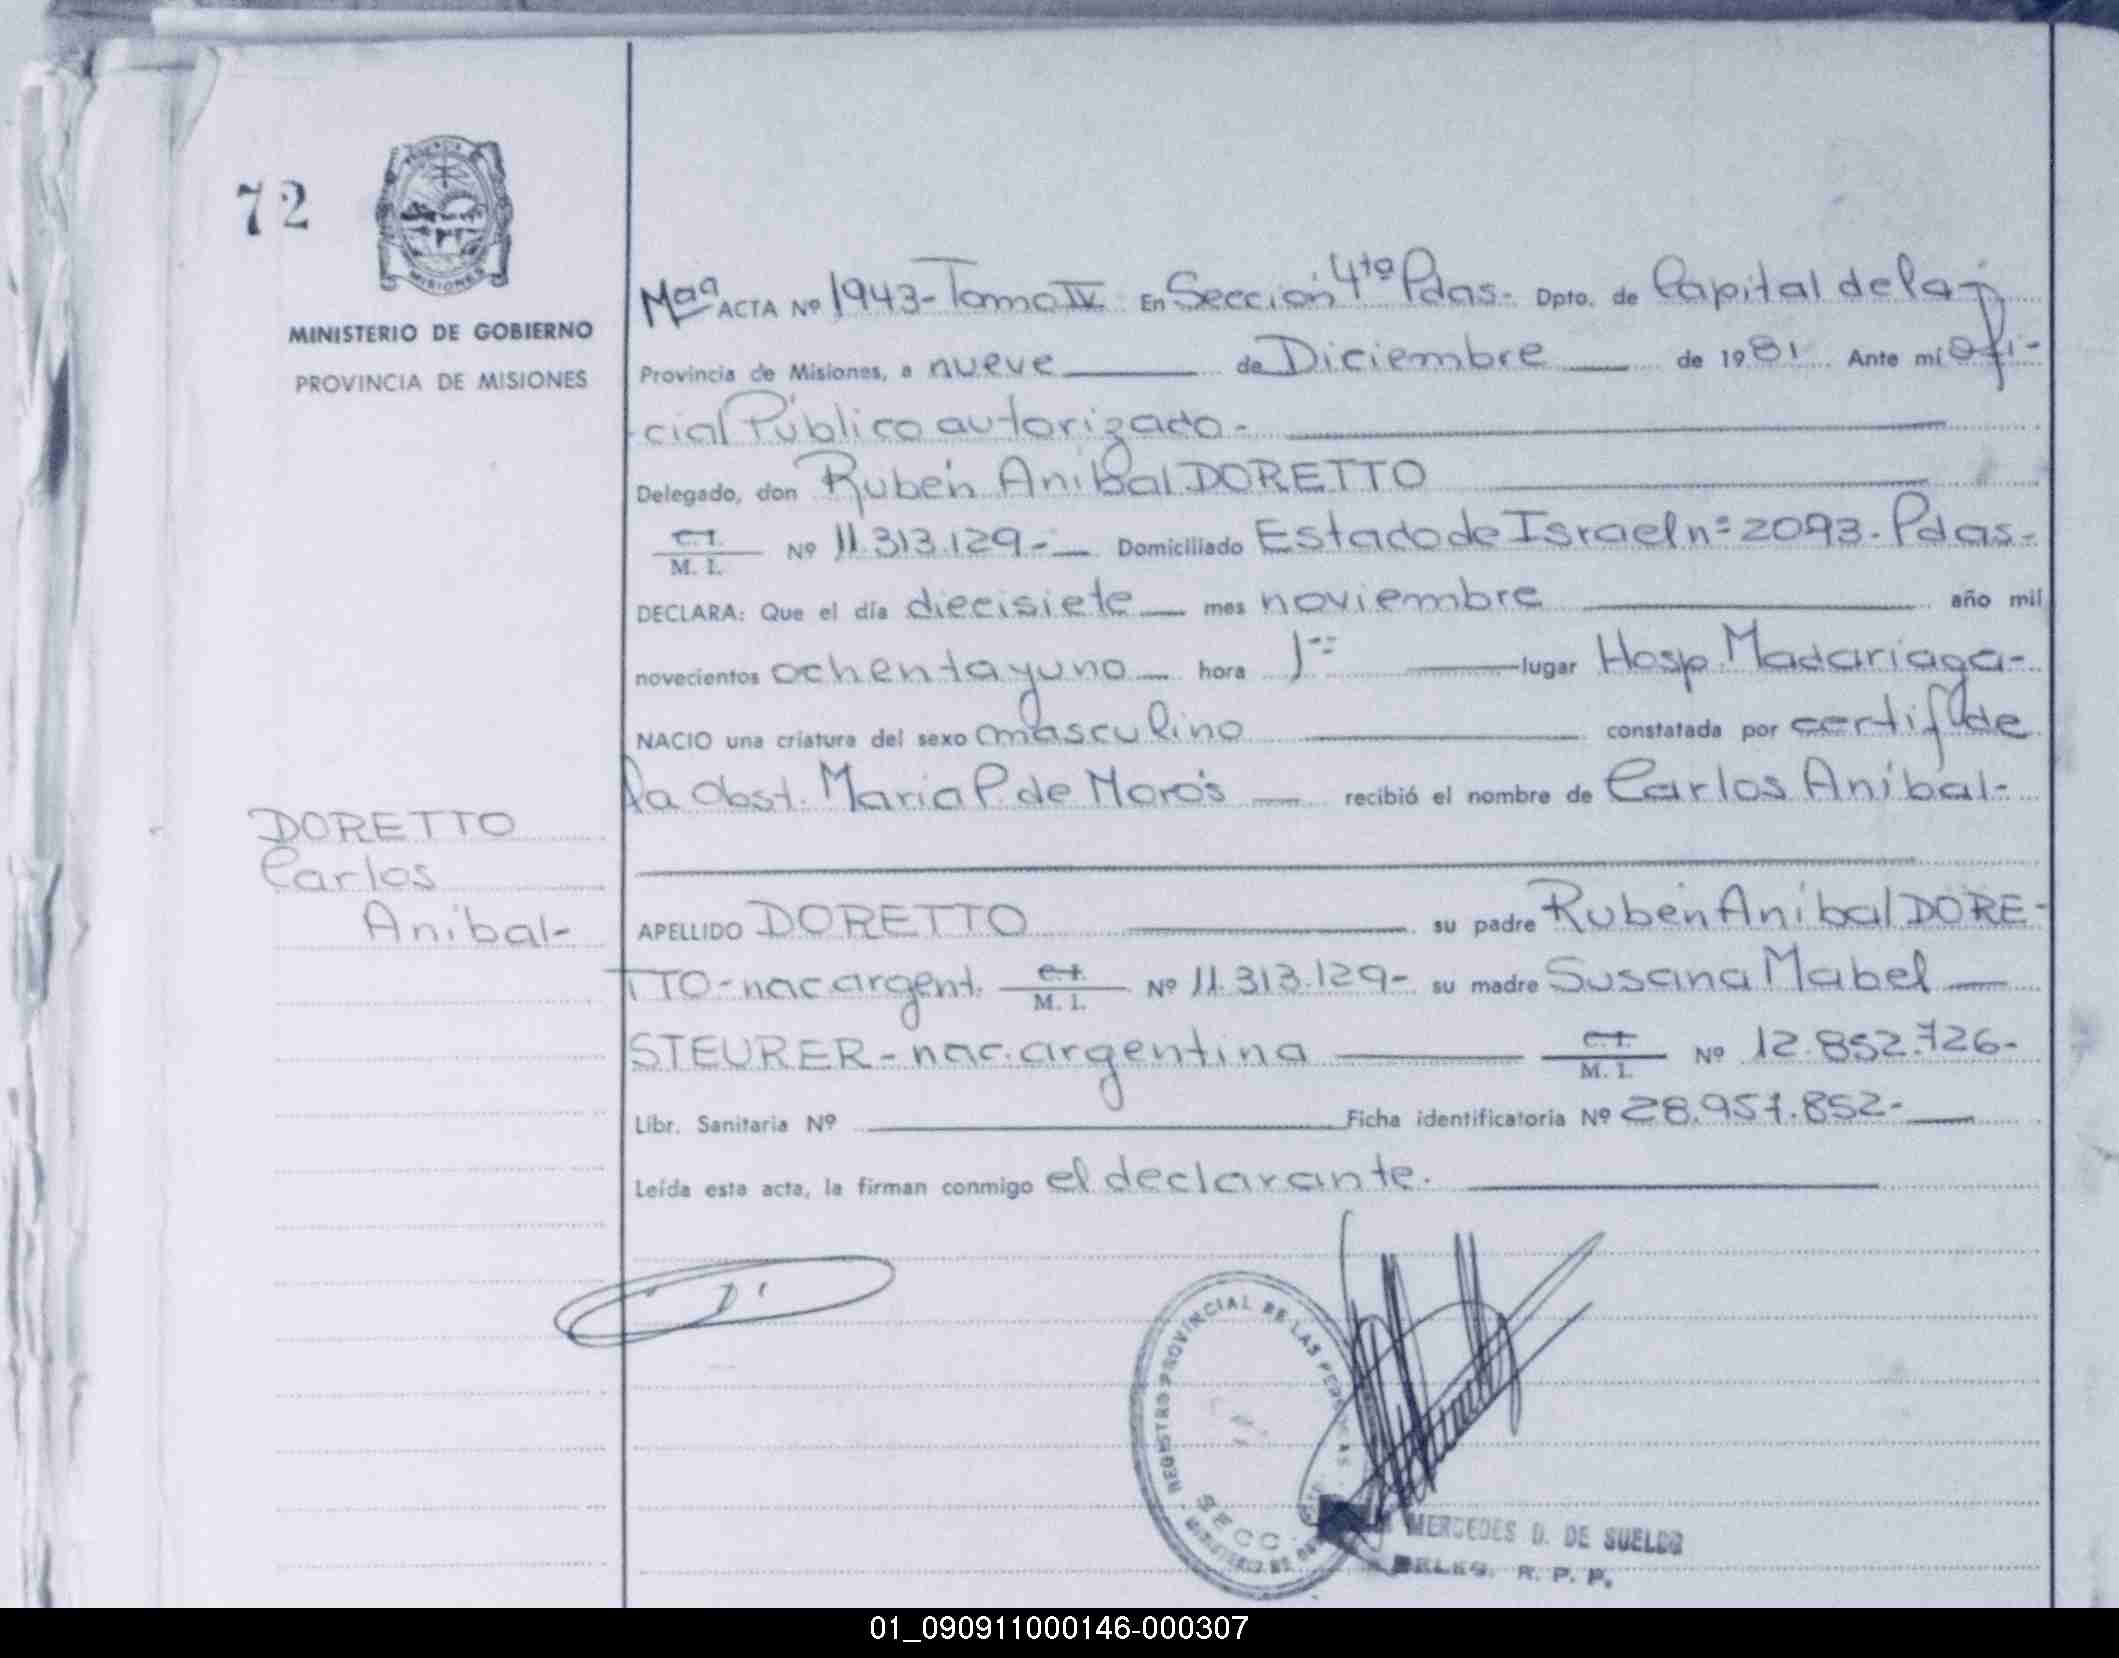 72
MISIONES
MINISTERIO DE GOBIERNO
PROVINCIA DE MISIONES
ACTA Nº 1943-Tomo IV En Sección 4ta Pdas. Dpto. de Capital de la
Provincia de Misiones, a nueve de Diciembre de 1981 Ante mí Ofi-
cial Público autorizado-
Delegado, don Rubén Anibal DORETTO
C.I.
M. I. Nº 11.313.129- Domiciliado Estado de Israel nº 2093. Pdas-
DECLARA: Que el día diecisiete mes noviembre año mil
novecientos ochenta y uno hora 1 lugar Hosp. Madariaga-
NACIO una criatura del sexo masculino constatada por certif de
la Obst. Maria P. de Morós recibió el nombre de Carlos Aníbal-
DORETTO
Carlos
Anibal-
APELLIDO DORETTO su padre Rubén Aníbal DORE-
TTO-nac argent. C.I.
M. I. Nº 11.313.129- su madre Susana Mabel
STEURER-nac. argentina C.I.
M. I. Nº 12.852.726-
Libr. Sanitaria Nº Ficha identificatoria Nº 28.957.852-
Leída esta acta, la firman conmigo el declarante.
REGISTRO PROVINCIAL DE LAS PERSONAS
SECC.
MERCEDES D. DE SUELDO
DELEG. R. P. P.
01_090911000146-000307